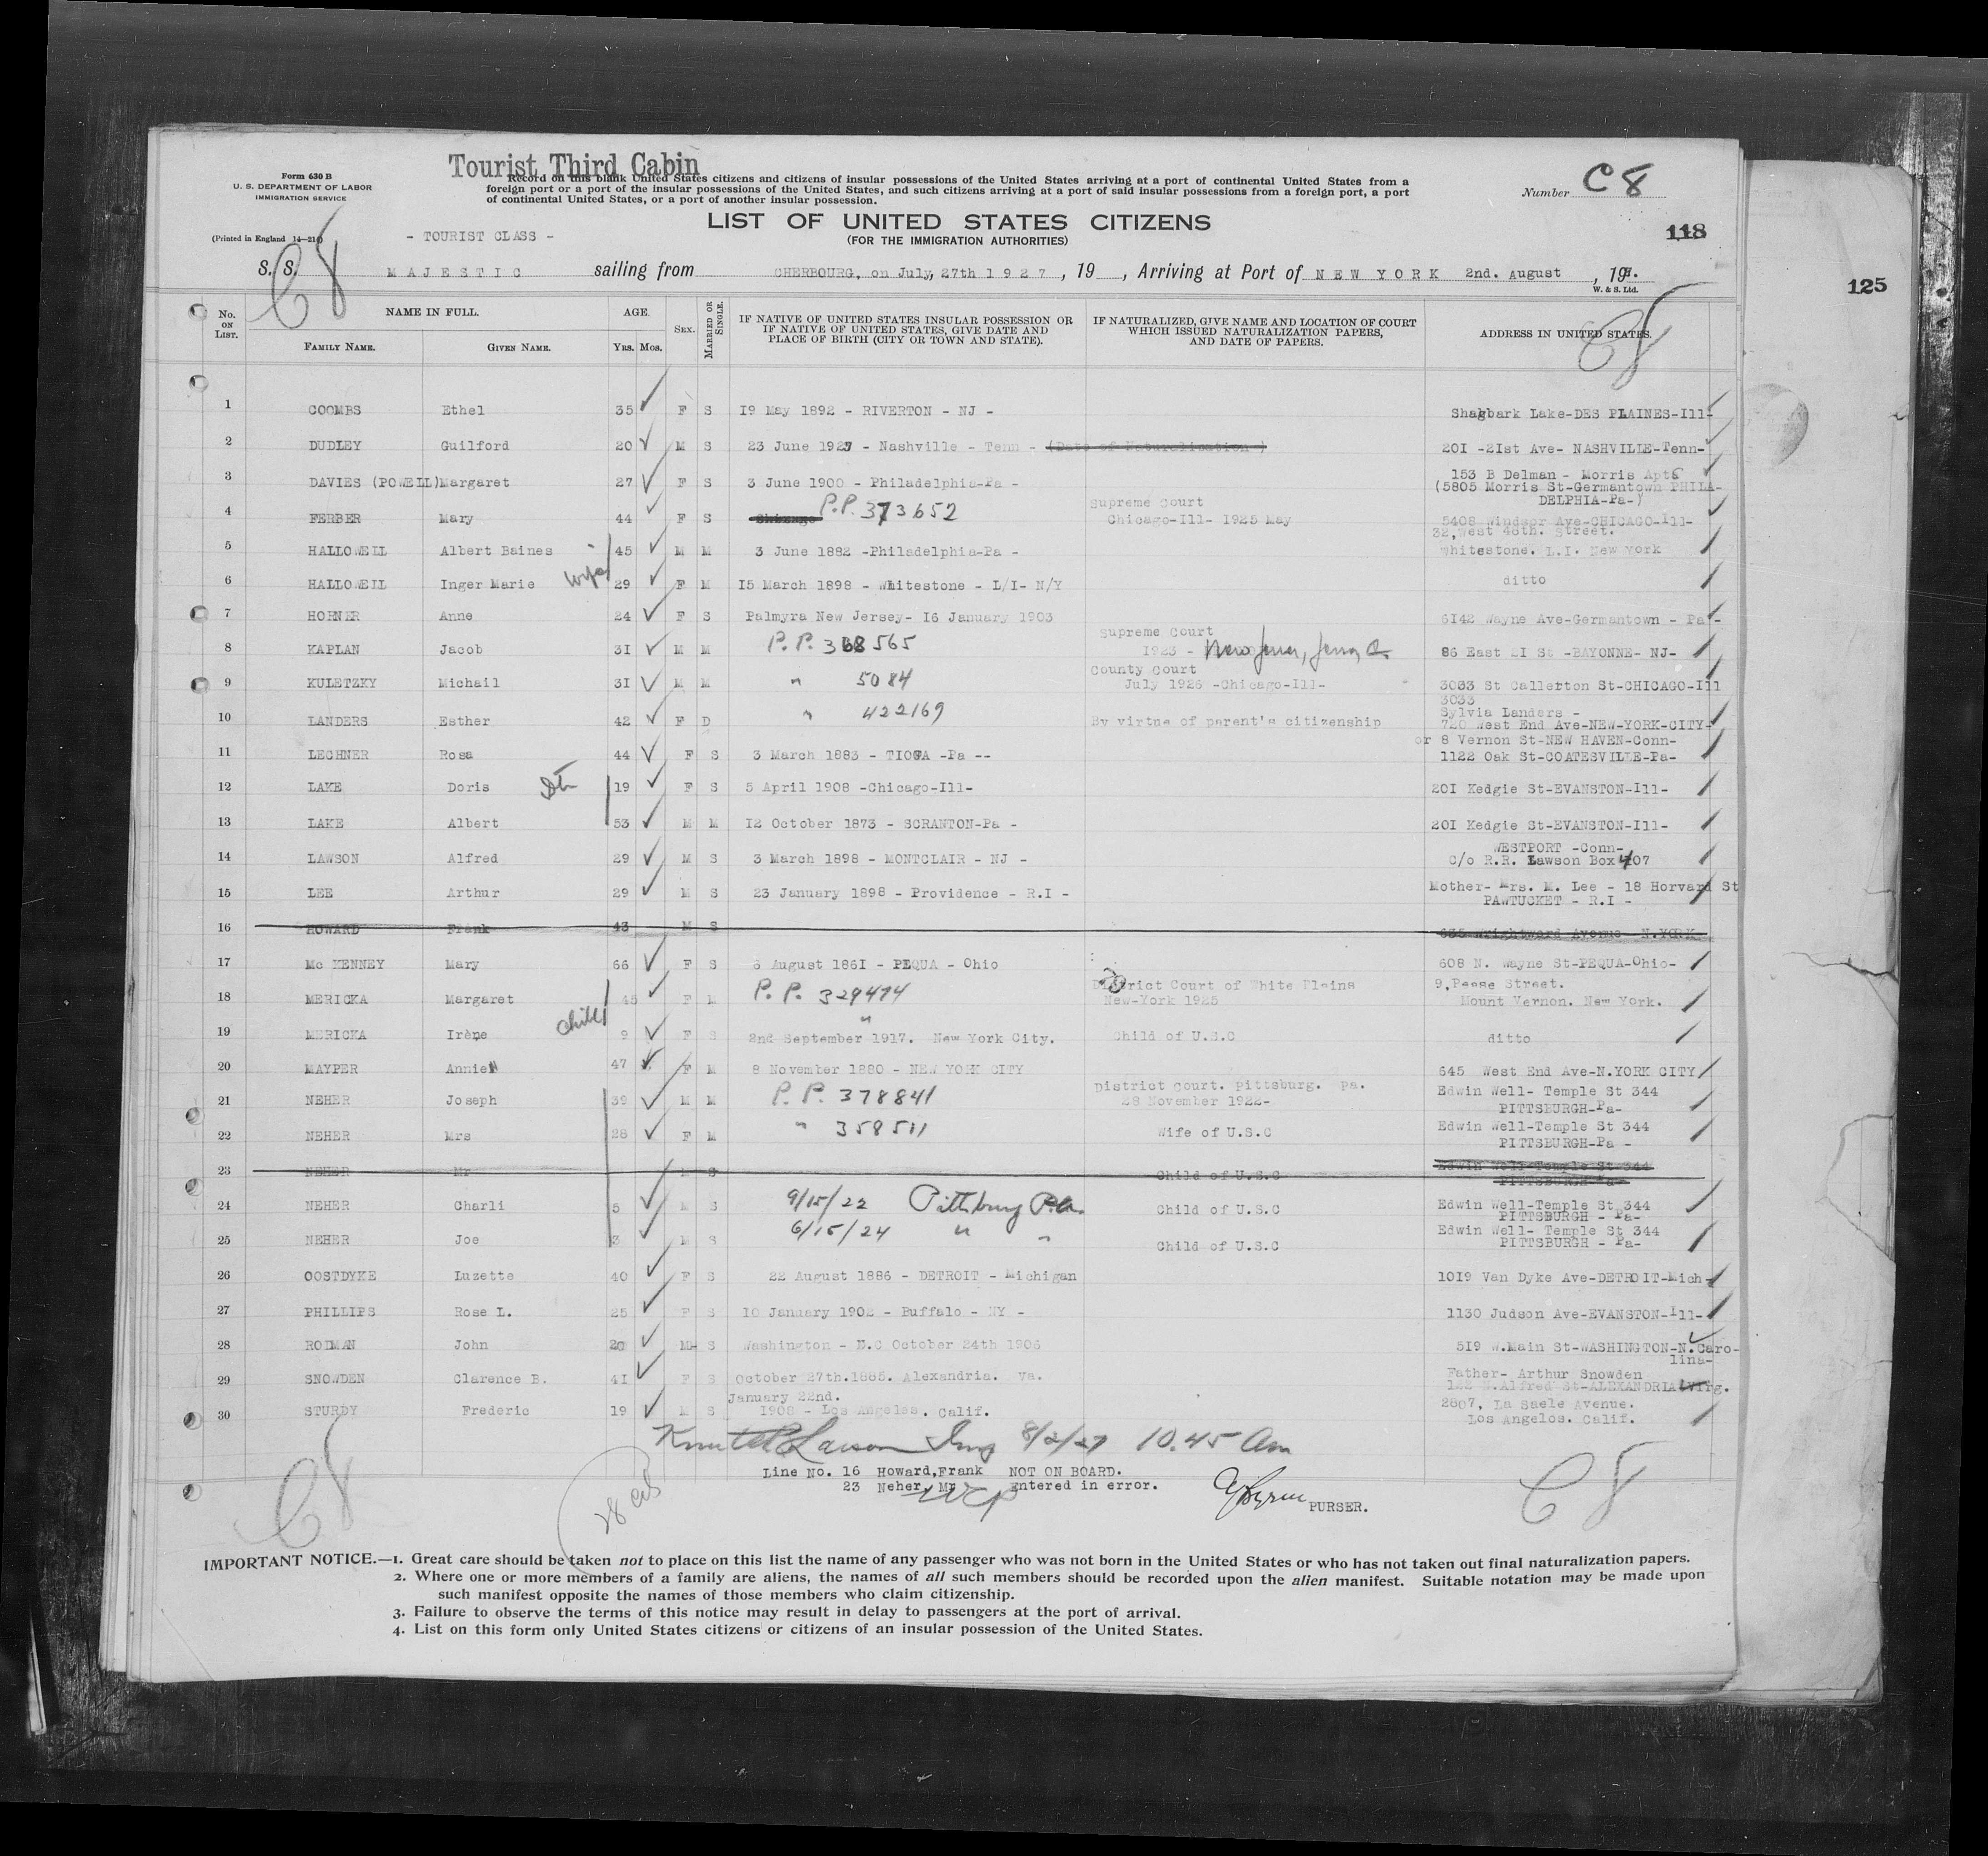 Tourist Third Cabin
Form 630 B
U. S. DEPARTMENT OF LABOR
IMMIGRATION SERVICE
(Printed in England 14—214)
Record on this blank United States citizens and citizens of insular possessions of the United States arriving at a port of continental United States from a
foreign port or a port of the insular possessions of the United States, and such citizens arriving at a port of said insular possessions from a foreign port, a port
of continental United States, or a port of another insular possession.
Number C 8
LIST OF UNITED STATES CITIZENS
(FOR THE IMMIGRATION AUTHORITIES)
118
125
- TOURIST CLASS -
C8
S. S. MAJESTIC sailing from CHERBOURG, on July, 27th 1927, 19 , Arriving at Port of NEW YORK 2nd. August , 19 .
W. & S. Ltd.
C8
No. ON LIST. NAME IN FULL. FAMILY NAME. GIVEN NAME. AGE. Yrs. Mos. SEX. MARRIED OR SINGLE. IF NATIVE OF UNITED STATES INSULAR POSSESSION OR IF NATIVE OF UNITED STATES, GIVE DATE AND PLACE OF BIRTH (CITY OR TOWN AND STATE). IF NATURALIZED, GIVE NAME AND LOCATION OF COURT WHICH ISSUED NATURALIZATION PAPERS, AND DATE OF PAPERS. ADDRESS IN UNITED STATES.
1 COOMBS Ethel 35 F S 19 May 1892 - RIVERTON - NJ - Shagbark Lake-DES PLAINES-Ill-
2 DUDLEY Guilford 20 M S 23 June 1927 - Nashville - Tenn - (Date of Naturalization ) 20I -2Ist Ave- NASHVILLE-Tenn-
3 DAVIES (POWELL)Margaret 27 F S 3 June 1900 - Philadelphia-Pa - 153 B Delman - Morris Apts
(5805 Morris St-Germantown PHILA-
DELPHIA-Pa-)
4 FERBER Mary 44 F S Chicago P.P. 373652 Supreme Court
Chicago-Ill- 1925 May 5408 Windsor Ave-CHICAGO-Ill-
5 HALLOWELL Albert Baines 45 M M 3 June 1882 -Philadelphia-Pa - 32,West 48th. Street.
Whitestone. L.I. New York
6 HALLOWELL Inger Marie wife 29 F M I5 March 1898 - Whitestone - L/I- N/Y ditto
7 HORNER Anne 24 F S Palmyra New Jersey- I6 January 1903 6I42 Wayne Ave-Germantown - Pa -
8 KAPLAN Jacob 3I M M P.P. 368565 Supreme Court
1923 - 86 East 2I St -BAYONNE- NJ-
9 KULETZKY Michail 3I M M " 5084 County Court
July 1926 -Chicago-Ill- 3033 St Callerton St-CHICAGO-Ill
3033
10 LANDERS Esther 42 F D " 422169 By virtue of parent's citizenship Sylvia Landers -
720 West End Ave-NEW-YORK-CITY-
or 8 Vernon St-NEW HAVEN-Conn-
11 LECHNER Rosa 44 F S 3 March 1883 - TIOGA -Pa -- 1122 Oak St-COATESVILLE-Pa-
12 LAKE Doris 19 F S 5 April 1908 -Chicago-Ill- 20I Kedgie St-EVANSTON-Ill-
13 LAKE Albert 53 M M I2 October 1873 - SCRANTON-Pa - 20I Kedgie St-EVANSTON-Ill-
14 LAWSON Alfred 29 M S 3 March 1898 - MONTCLAIR - NJ - WESTPORT -Conn-
c/o R.R. Lawson Box 407
15 LEE Arthur 29 M S 23 January 1898 - Providence - R.I - Mother- Mrs. M. Lee - 18 Horvard St
PAWTUCKET - R.I -
16 HOWARD Frank 43 M S 635 Wrightward Avenue N.YORK
17 Mc KENNEY Mary 66 F S 6 August 186I - PEQUA - Ohio 608 N. Wayne St-PEQUA-Ohio-
18 MERICKA Margaret 45 F M P.P. 329474 District Court of White Plains
New-York 1925 9,Pease Street.
Mount Vernon. New York.
19 MERICKA Irène child 9 F S " 2nd September 1917. New York City. Child of U.S.C ditto
20 MAYPER Annie 47 F M 8 November 1880 - NEW YORK CITY 645 West End Ave-N.YORK CITY
21 NEHER Joseph 39 M M P.P. 378841 District Court. Pittsburg. Pa.
28 November 1922- Edwin Well- Temple St 344
PITTSBURGH-Pa-
22 NEHER Mrs 28 F M " 358511 Wife of U.S.C Edwin Well-Temple St 344
PITTSBURGH-Pa -
23 NEHER Mr M S Child of U.S.C Edwin Well-Temple St 344
PITTSBURGH-Pa-
24 NEHER Charli 5 M S 9/15/22 Pittsburg Pa. Child of U.S.C Edwin Well-Temple St 344
PITTSBURGH - Pa-
25 NEHER Joe 3 M S 6/15/24 " " Child of U.S.C Edwin Well- Temple St 344
PITTSBURGH - Pa-
26 OOSTDYKE Luzette 40 F S 22 August 1886 - DETROIT - Michigan 1019 Van Dyke Ave-DETROIT-Mich-
27 PHILLIPS Rose L. 25 F S 10 January 1902 - Buffalo - NY - 1130 Judson Ave-EVANSTON-Ill-
28 RODMAN John 20 M S Washington - N.C October 24th 1906 519 W.Main St-WASHINGTON-N.Caro-
lina-
29 SNOWDEN Clarence B. 4I F S October 27th.1885. Alexandria. Va. Father- Arthur Snowden
122 N.Alfred St-ALEXANDRIA-Virg.
30 STURDY Frederic 19 M S January 22nd.
1908 - Los Angeles. Calif. 2807, La Saele Avenue.
Los Angelos. Calif.
Larson Insp 8/2/27 10.45 Am
Line No. 16 Howard,Frank NOT ON BOARD.
23 Neher, Mr Entered in error.
PURSER.
C8
C8
IMPORTANT NOTICE.—1. Great care should be taken not to place on this list the name of any passenger who was not born in the United States or who has not taken out final naturalization papers.
2. Where one or more members of a family are aliens, the names of all such members should be recorded upon the alien manifest. Suitable notation may be made upon
such manifest opposite the names of those members who claim citizenship.
3. Failure to observe the terms of this notice may result in delay to passengers at the port of arrival.
4. List on this form only United States citizens or citizens of an insular possession of the United States.